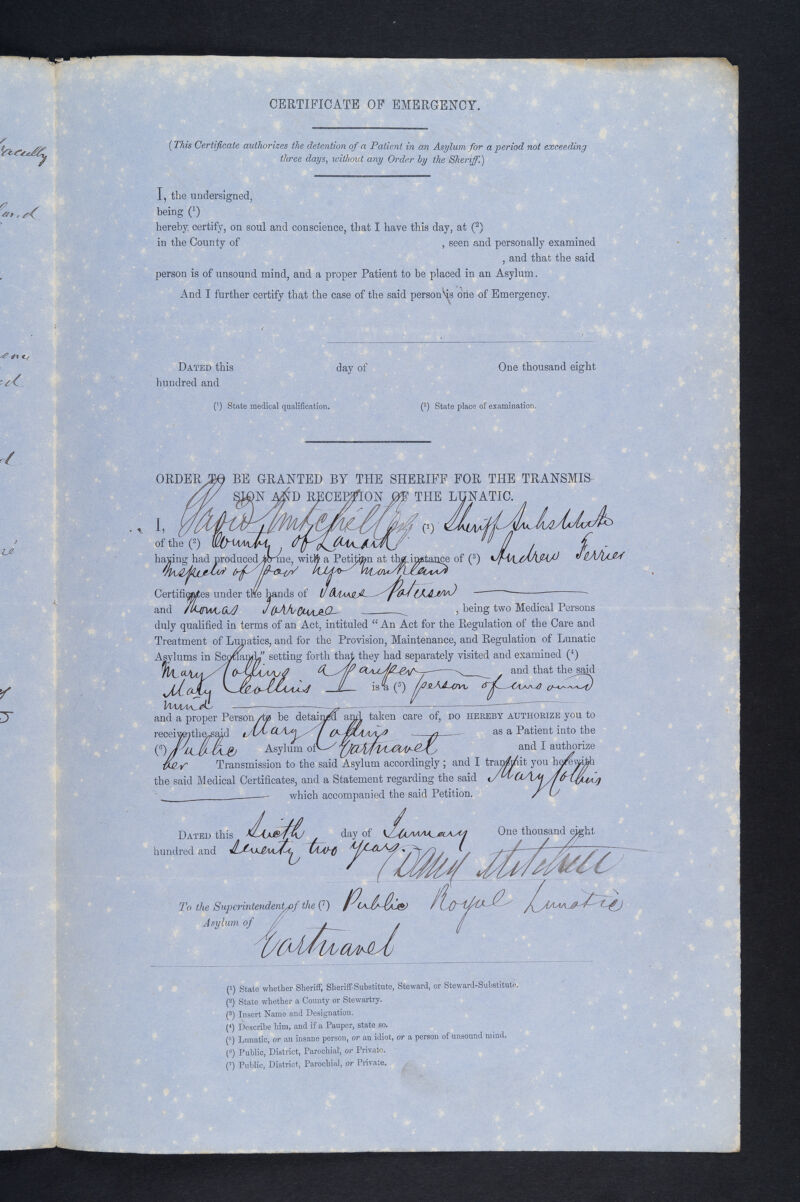 CERTIFICATE OF EMERGENCY.
(This Certificate authorizes the detention of a Patient in an Asylum for a period not exceeding
three days, without any Order by the Sheriff.)
I, the undersigned,
being (¹)
hereby certify, on soul and conscience, that I have this day, at (²)
in the County of , seen and personally examined
, and that the said
person is of unsound mind, and a proper Patient to be placed in an Asylum.
And I further certify that the case of the said person is one of Emergency.
DATED this day of One thousand eight
hundred and
(¹) State medical qualification. (²) State place of examination.
ORDER TO BE GRANTED BY THE SHERIFF FOR THE TRANSMIS-
SION AND RECEPTION OF THE LUNATIC.
I, David Mitchell Esq (¹) Sheriff Substitute
of the (²) County of Lanark
having had produced to me, with a Petition at the instance of (³) Andrew Ferrier
Inspector of poor New Monkland
Certificates under the hands of James Paterson
and Thomas Torrance , being two Medical Persons
duly qualified in terms of an Act, intituled "An Act for the Regulation of the Care and
Treatment of Lunatics, and for the Provision, Maintenance, and Regulation of Lunatic
Asylums in Scotland," setting forth that they had separately visited and examined (⁴)
Mary Collins a pauper and that the said
Mary Collins is a (⁵) person of unsound
mind
and a proper Person to be detained and taken care of, DO HEREBY AUTHORIZE you to
receive the said Mary Collins as a Patient into the
(⁶) Public Asylum of Gartnavel and I authorize
her Transmission to the said Asylum accordingly; and I transmit you herewith
the said Medical Certificates, and a Statement regarding the said Mary Collins
which accompanied the said Petition.
DATED this Sixth day of January One thousand eight
hundred and seventy two years.
David Mitchell
To the Superintendent of the (⁷) Public Royal Lunatic
Asylum of
Gartnavel
(¹) State whether Sheriff, Sheriff-Substitute, Steward, or Steward-Substitute.
(²) State whether a County or Stewartry.
(³) Insert Name and Designation.
(⁴) Describe him, and if a Pauper, state so.
(⁵) Lunatic, or an insane person, or an idiot, or a person of unsound mind.
(⁶) Public, District, Parochial, or Private.
(⁷) Public, District, Parochial, or Private.